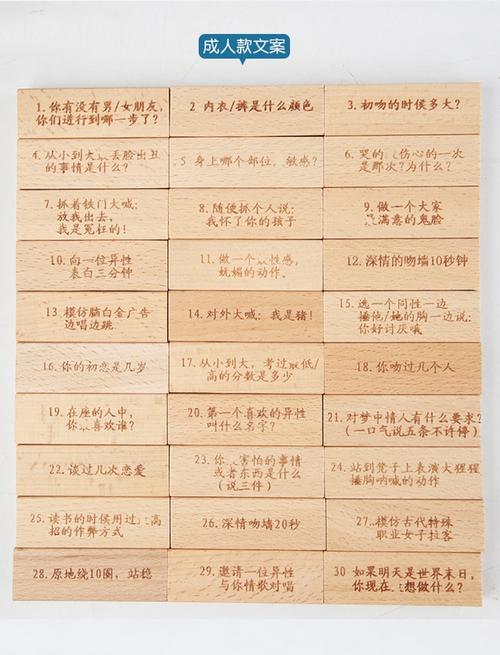 成人款文案
1. 你有没有男/女朋友,
你们进行到哪一步了?
2 内衣/裤是什么颜色
3. 初吻的时候多大?
4. 从小到大 丢脸出丑
的事情是什么?
5 身上哪个部位, 敏感?
6. 哭的 伤心的一次
是那次?为什么?
7. 抓着铁门大喊:
放我出去,
我是冤枉的!
8. 随便抓个人说:
我怀了你的孩子
9. 做一个大家
满意的鬼脸
10. 向一位异性
表白三分钟
11. 做一个 性感,
妩媚的动作.
12. 深情的吻墙10秒钟
13 模仿脑白金广告
边唱边跳
14. 对外大喊:我是猪!
15. 选一个同性一边
捶他/她的胸一边说:
你好讨厌哦
16. 你的初恋是几岁
17. 从小到大, 考过 低/
高的分数是多少
18. 你吻过几个人
19. 在座的人中,
你 喜欢谁?
20. 第一个喜欢的异性
叫什么名字?
21. 对梦中情人有什么要求?
(一口气说五条不许停)
22. 谈过几次恋爱
23. 你 害怕的事情
或者东西是什么
(说三件)
24. 站到凳子上表演大猩猩
捶胸呐喊的动作
25. 读书的时候用过 高
招的作弊方式
26. 深情吻墙20秒
27. 模仿古代特殊
职业女子拉客
28. 原地绕10圈, 站稳
29. 邀请一位异性
与你情歌对唱
30 如果明天是世界末日,
你现在 想做什么?